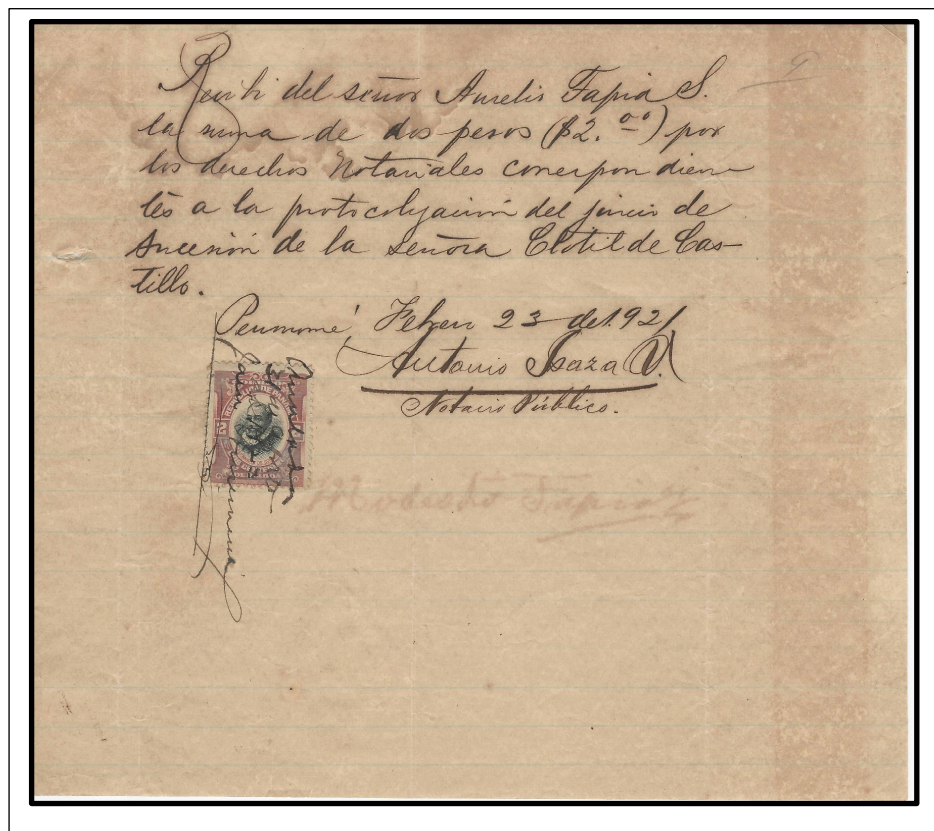 Recibi del señor Aurelio Tapia S.
la suma de dos pesos ($2.00) por
los derechos Notariales correspondien-
tes a la protocolización del juicio de
sucesión de la señora Clotilde Cas-
tillo.
Penonomé, Febrero 23 de 1921
Antonio Isaza V.
Notario Público.
Modesto Tapia
9